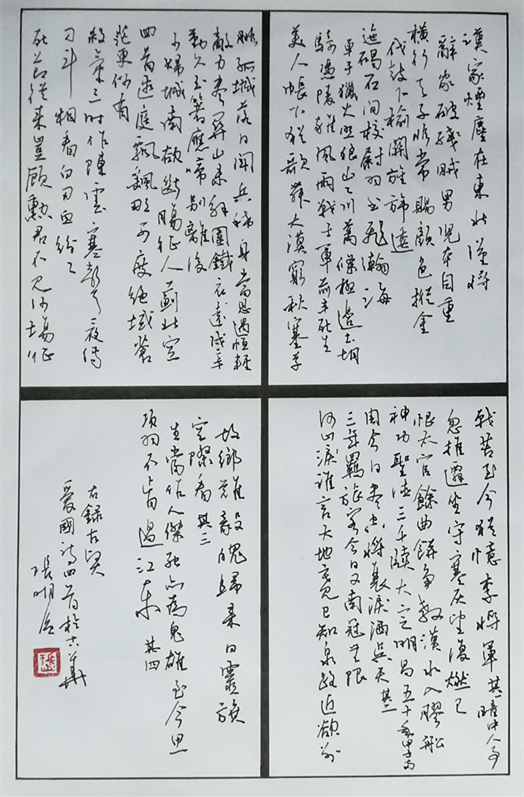 漢家煙塵在東北漢將
辭家破殘賊男兒本自重
橫行天子非常賜顏色摐金
伐鼓下榆關旌旆逶
迤碣石間校尉羽書飛瀚海
單于獵火照狼山山川蕭條極邊土胡
騎憑陵雜風雨戰士軍前半死生
美人帳下猶歌舞大漠窮秋塞草
腓孤城落日鬥兵稀身當恩遇恆輕
敵力盡關山未解圍鐵衣遠戍辛
勤久玉箸應啼別離後
少婦城南欲斷腸征人薊北空
回首邊庭飄颻那可度絕域蒼
茫更何有
殺氣三時作陣雲寒聲一夜傳
刁斗相看白刃血紛々
死節從來豈顧勳君不見沙場征
戰苦至今猶憶李將軍 其一 暗中人事
忽推遷坐守寒灰望復燃已
恨太官餘曲餅爭教漢水入膠船
神功聖德三千牘大定明昌五十年甲子兩
周今日盡空將衰淚洒吳天 其二
三年羈旅客今日又南冠無限
河山淚誰言天地寬已知泉路近欲別
故鄉難毅魄歸來日靈旗
空際看 其三
生當作人傑死亦為鬼雄至今思
項羽不肯過江東 其四
右錄古賢
愛國詩四首於
張明